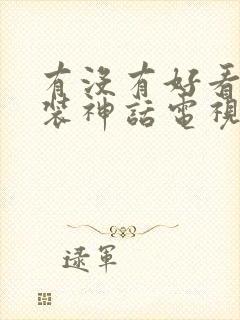 有沒有好看
裝神話電視
逯軍